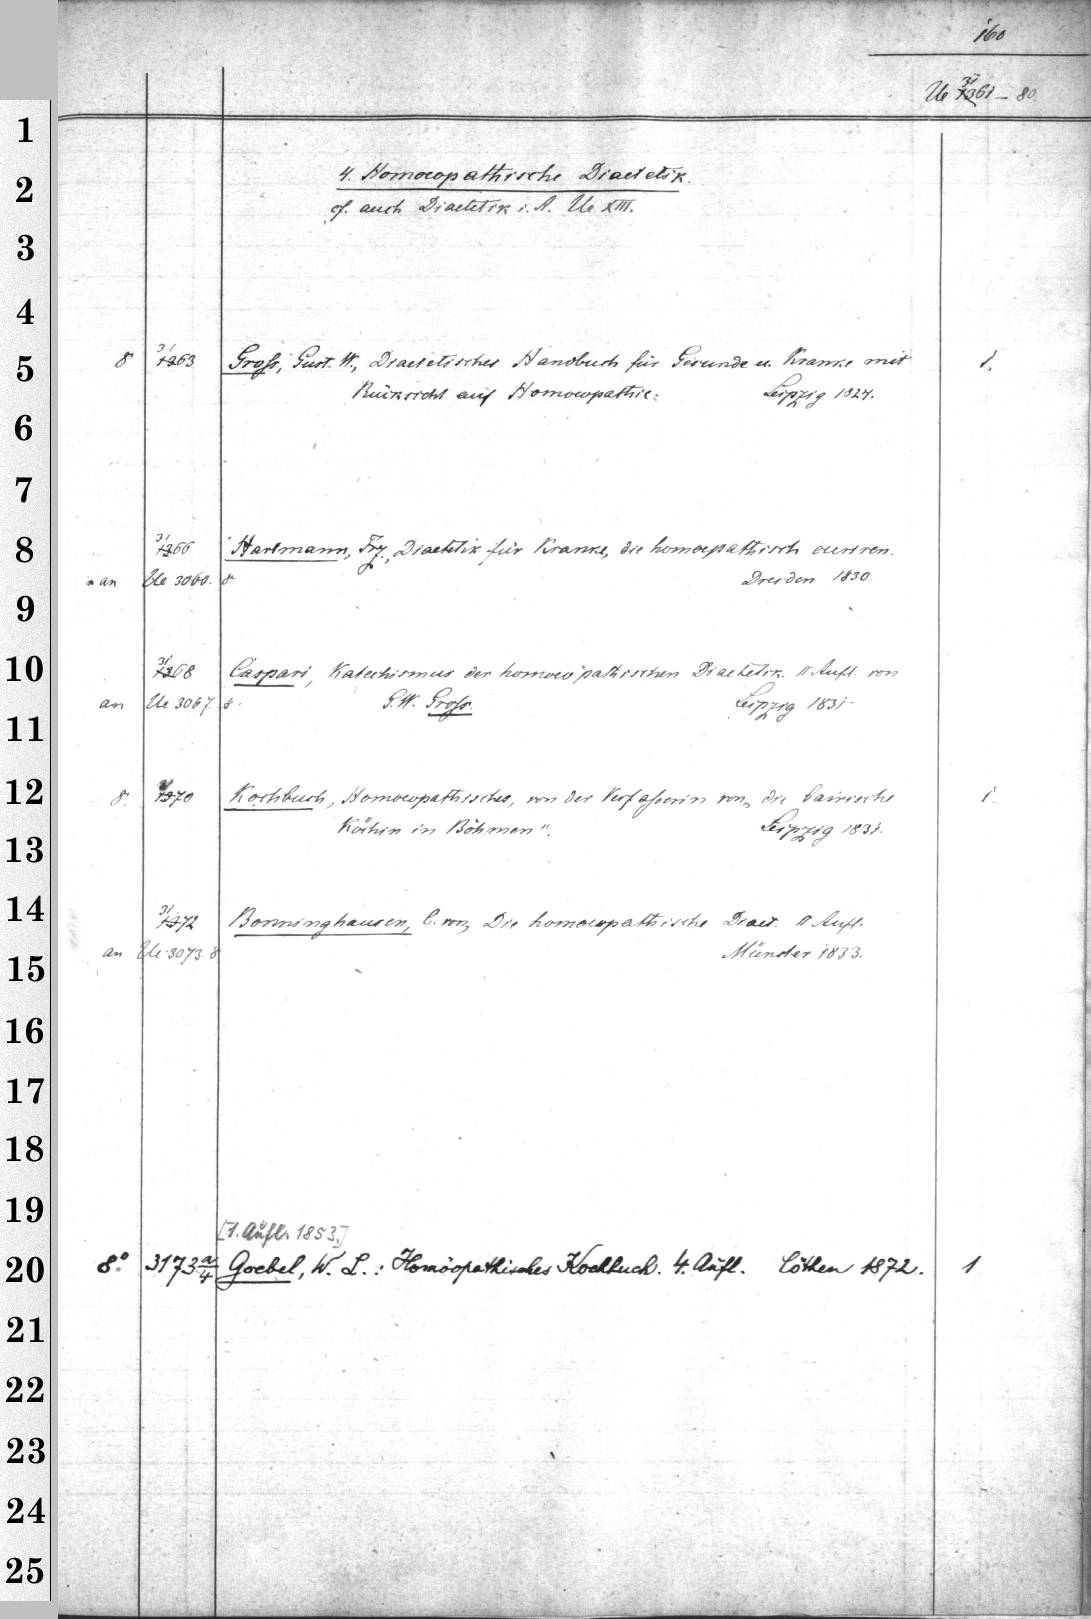 160
Ue 3161 – 80
1
2
3
4
5
6
7
8
9
10
11
12
13
14
15
16
17
18
19
20
21
22
23
24
25
4. Homoeopathische Diaetetik.
cf. auch Diaetetik i. A. Ue XIII.
8 3163 Groß, Gust. W., Diaetetisches Handbuch für Gesunde u. Kranke mit 1.
Rücksicht auf Homoeopathie. Leipzig 1824.
3166 Hartmann, Frz., Diaetetik für Kranke, die homoepathisch curiren.
an Ue 3060. 8. Dresden 1830.
3168 Caspari, Katechismus der homoeopathischen Diaetetik. II Aufl. von
an Ue 3067. 8. G. W. Groß. Leipzig 1831
8. 70 Kochbuch, Homoeopathisches, von der Verfaßerin von „die bairische 1.
Köchin in Böhmen". Leipzig 1831.
3172 Bonninghausen, C. von, Die homoeopathische Diaet. II Aufl.
an Ue 3073. 8 Münster 1833.
[1. Aufl. 1853.]
8° 3173 a/4 Goebel, W. L.: Homöopathisches Kochbuch. 4. Aufl. Cöthen 1872. 1